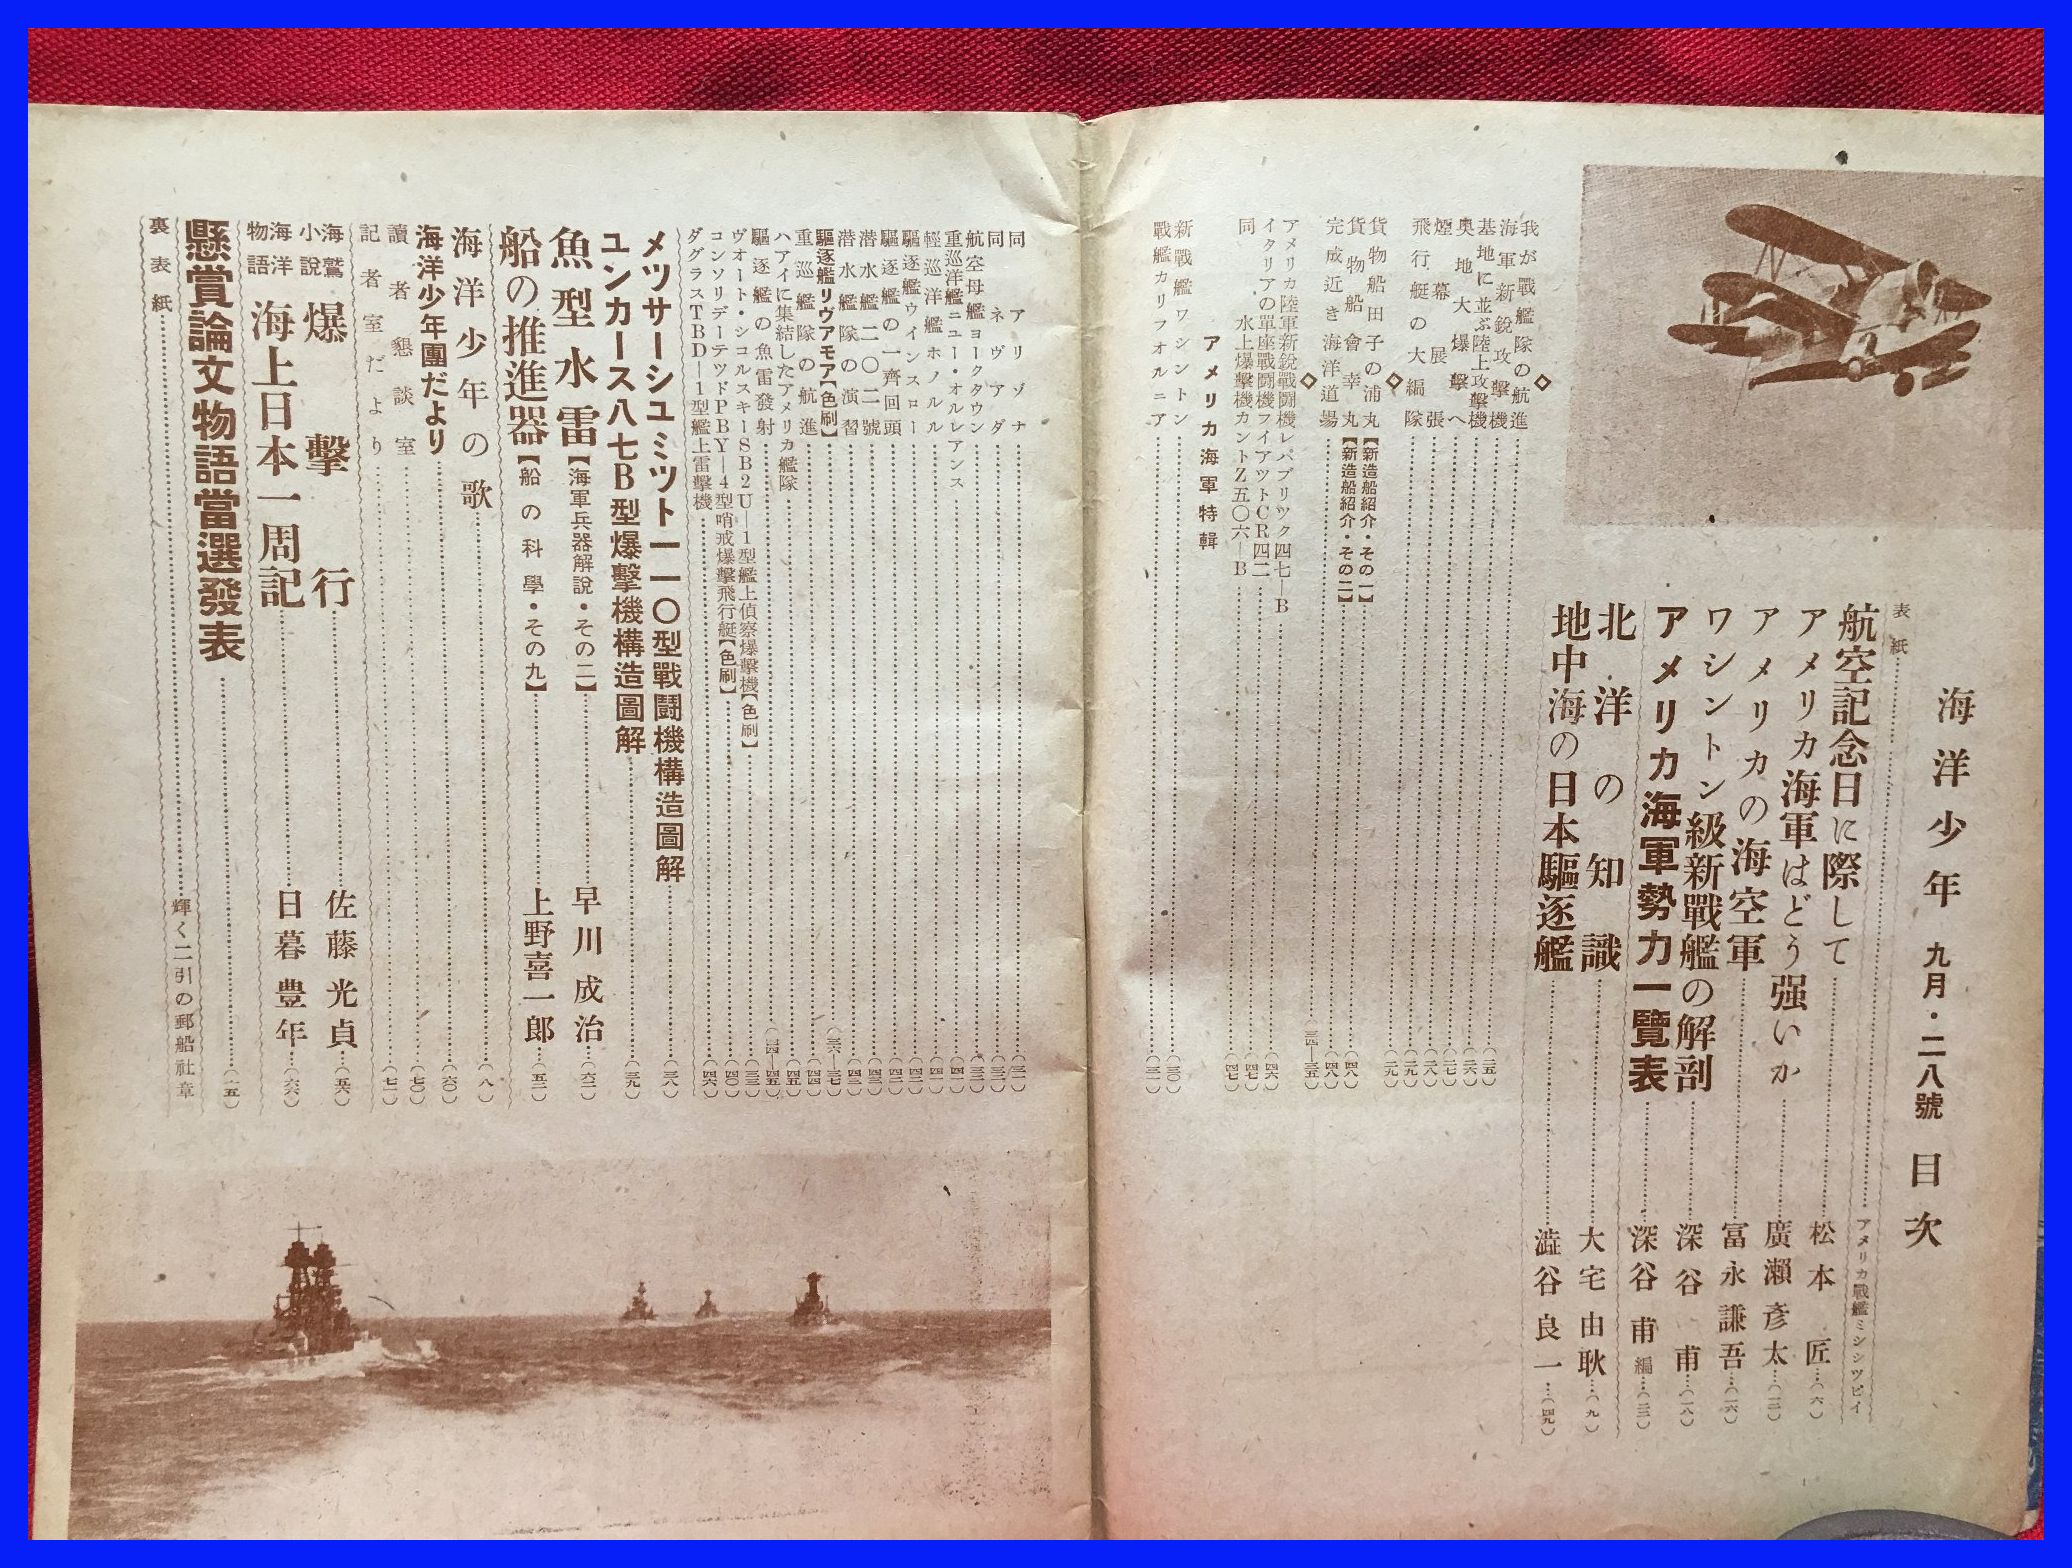 海洋少年 九月・二八號 目次
表紙……アメリカ戰艦ミシシツピイ
航空記念日に際して……松本匠…(六)
アメリカ海軍はどう强いか……廣瀨彥太…(一二)
アメリカの海空軍……富永謙吾…(一六)
ワシントン級新戰艦の解剖……深谷甫…(一八)
アメリカ海軍勢力一覽表……深谷甫編…(二二)
北洋の知識……大宅由耿…(九)
地中海の日本驅逐艦……澁谷良一…(四九)
◇
我が戰艦隊の航進……(二五)
海軍新銳攻擊機……(二六)
基地に並ぶ陸上攻擊機……(二七)
奧地大爆擊へ……(二八)
煙幕展張……(二九)
飛行艇の大編隊……(二九)
◇
貨物船田子の浦丸【新造船紹介・その一】……
貨物船會幸丸【新造船紹介・その二】……(四八)
完成近き海洋道場……(四八)
◇
アメリカ陸軍新銳戰鬪機レパブリツク四七—B……(四六)
イタリアの單座戰鬪機フイアツトCR四二……(四七)
同 水上爆擊機カントZ五〇六—B……(四七)
アメリカ海軍特輯
新戰艦ワシントン……(三〇)
戰艦カリフオルニア……(三一)
同 アリゾナ……
同 ネヴアダ……
航空母艦ヨークタウン……
重巡洋艦ニュー・オルレアンス……(四一)
輕巡洋艦ホノルル……(四一)
驅逐艦ウインスロー……(四二)
驅逐艦の一齊回頭……(四二)
潜水艦二〇二號……(四三)
潜水艦隊の演習……(四三)
驅逐艦リヴアモア【色刷】……(三六—三七)
重巡艦隊の航進……(四四)
ハアイに集結したアメリカ艦隊……(四五)
驅逐艦の魚雷發射……
ヴオート・シコルスキーSB2U—1型艦上偵察爆擊機【色刷】……(三三)
コンソリデーテツドPBY—4型哨戒爆擊飛行艇【色刷】……(四〇)
ダグラスTBD—1型艦上雷擊機……(四六)
メツサーシユミツト一一〇型戰鬪機構造圖解……(三八)
ユンカース八七B型爆擊機構造圖解……(三九)
魚型水雷【海軍兵器解說・その二】……早川成治…(六二)
船の推進器【船の科學・その九】……上野喜一郎…(五二)
海洋少年の歌……(八)
海洋少年團だより……(六〇)
讀者懇談室……(七〇)
記者室だより……(七二)
海鷲小說 爆擊行……佐藤光貞…(五六)
海洋物語 海上日本一周記……日暮豊年…(六六)
懸賞論文物語當選發表……(一五)
裏表紙……輝く二引の郵船社章